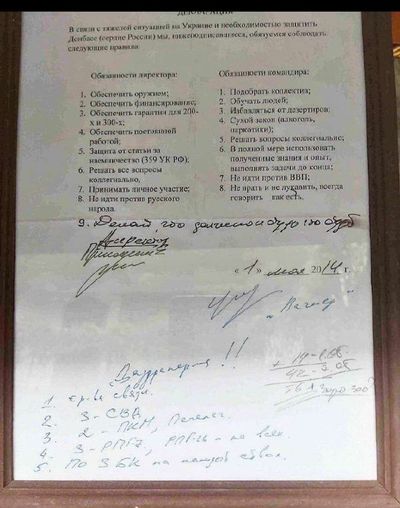 ДЕКЛАРАЦИЯ
В связи с тяжелой ситуацией на Украине и необходимостью защитить
Донбасс (сердце России) мы, нижеподписавшиеся, обязуемся соблюдать
следующие правила:
Обязанности директора:
1. Обеспечить оружием;
2. Обеспечить финансирование;
3. Обеспечить гарантии для 200-
х и 300-х;
4. Обеспечить постоянной
работой;
5. Защита от статьи за
наемничество (359 УК РФ);
6. Решать все вопросы
коллегиально;
7. Принимать личное участие;
8. Не идти против русского
народа.
Обязанности командира:
1. Подобрать коллектив;
2. Обучать людей;
3. Избавляться от дезертиров;
4. Сухой закон (алкоголь,
наркотики);
5. Решать вопросы коллегиально;
6. В полной мере использовать
полученные знания и опыт,
выполнять задачи до конца;
7. Не идти против ВВП;
8. Не врать и не лукавить, всегда
говорить как есть.
9. Делай, что должно и будь что будет
Директор
« 1 » мая 2014 г.
„Вагнер"
!!
1. связи.
2. 3 - СВД
3. 2 - ПКМ, Печенег.
4. 3 - РПГ7, РПГ26 - на всех.
5. По 3 БК на каждый ствол.